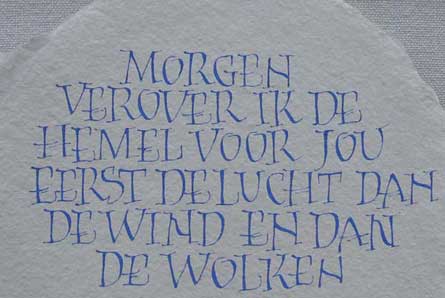 MORGEN
VEROVER IK DE
HEMEL VOOR JOU
EERST DE LUCHT DAN
DE WIND EN DAN
DE WOLKEN